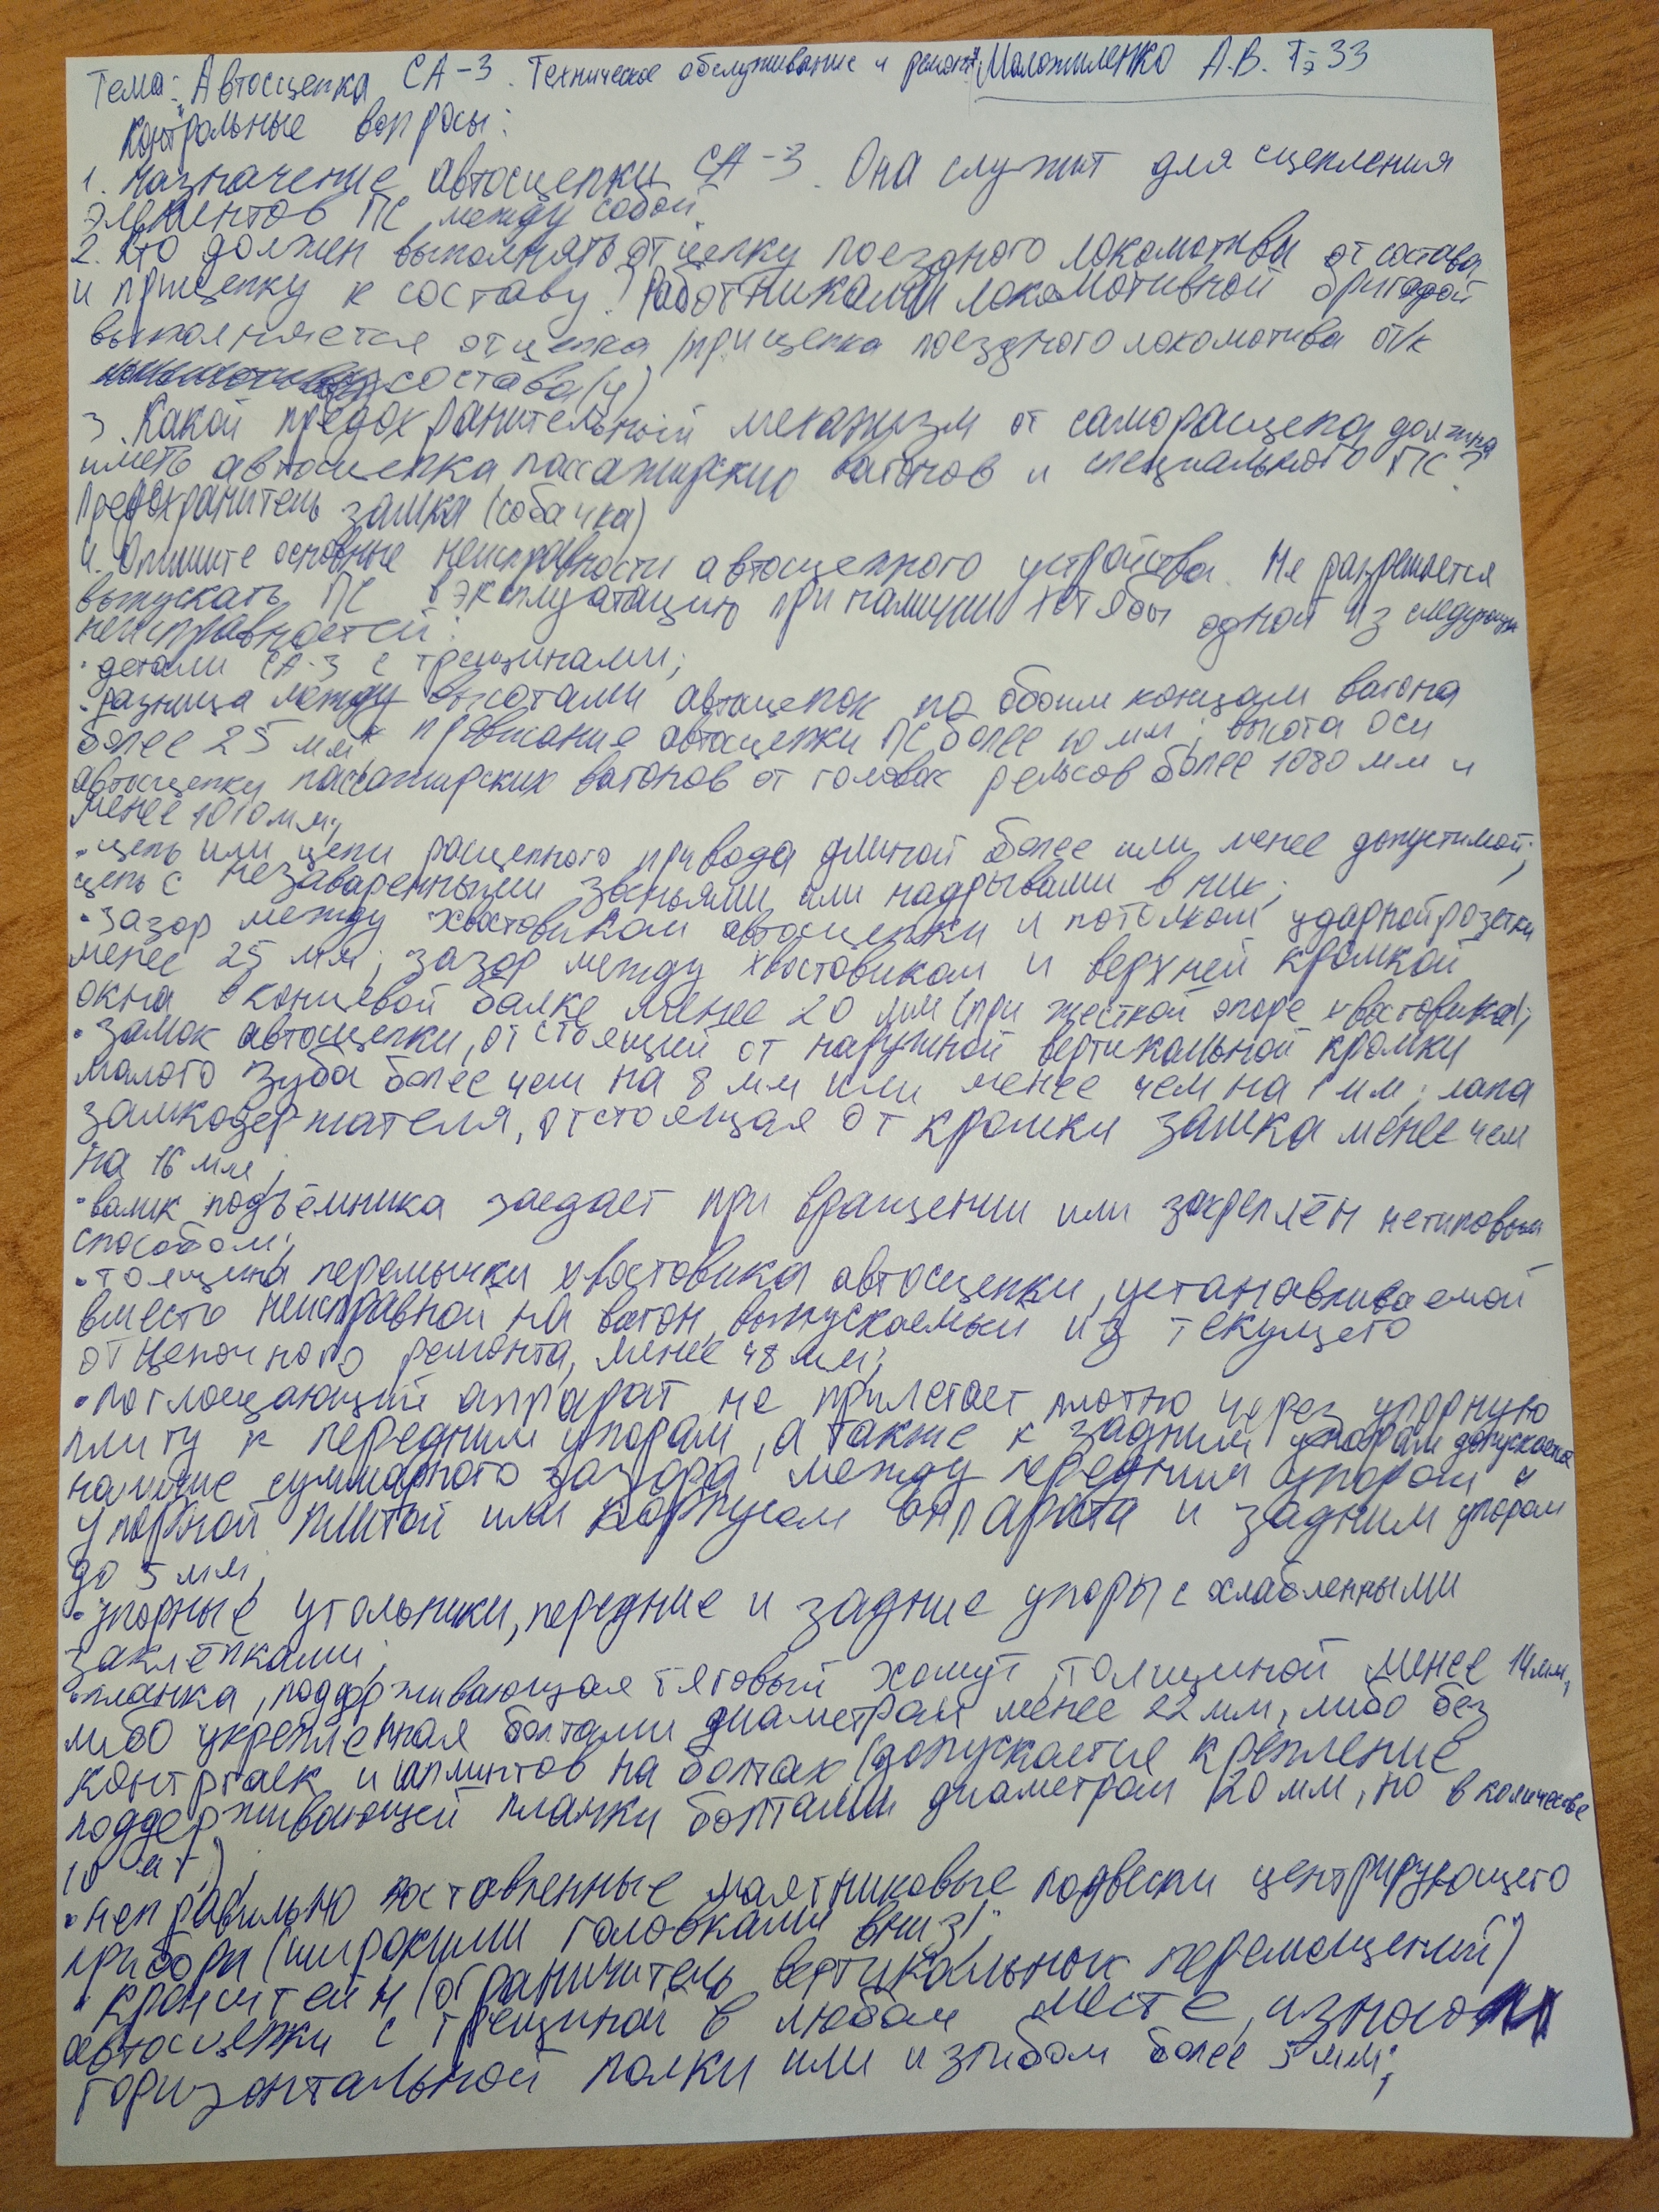 Тема: Автосцепка СА-3. Техническое обслуживание и ремонт А.В. Тэ 33
Контрольные вопросы:
1. Назначение автосцепки СА-3. Она служит для сцепления
элементов ПС между собой.
2. Кто должен выполнять отцепку поездного локомотива от состава
и прицепку к составу? Работниками локомотивной бригадой
выполняется отцепка/прицепка поездного локомотива от/к
состава(у)
3. Какой предохранительный механизм от саморасцепа должна
иметь автосцепка пассажирских вагонов и специального ПС?
Предохранитель замка (собачка)
4. Опишите основные неисправности автосцепного устройства. Не разрешается
выпускать ПС в эксплуатацию при наличии хотя бы одной из следующих
неисправностей:
· детали СА-3 с трещинами;
· разница между высотами автосцепок по обоим концам вагона
более 25 мм; провисание автосцепки ПС более 10 мм; высота оси
автосцепки пассажирских вагонов от головок рельсов более 1080 мм и
менее 1010 мм;
· цепь или цепи расцепного привода длиной более или менее допустимой;
цепь с незаваренными звеньями или надрывами в них;
· зазор между хвостовиком автосцепки и потолком ударной розетки
менее 25 мм; зазор между хвостовиком и верхней кромкой
окна в концевой балке менее 20 мм (при жесткой опоре хвостовика);
· замок автосцепки, отстоящий от наружной вертикальной кромки
малого зуба более чем на 8 мм или менее чем на 1 мм; лапа
замкодержателя, отстоящая от кромки замка менее чем
на 16 мм;
· валик подъёмника заедает при вращении или закреплён нетиповым
способом;
· толщина перемычки хвостовика автосцепки, устанавливаемой
вместо неисправной на вагон, выпускаемый из текущего
отцепочного ремонта, менее 48 мм;
· поглощающий аппарат не прилегает плотно через упорную
плиту к передним упорам, а также к задним упорам допускается
наличие суммарного зазора между передним упором и
упорной плитой или корпусом аппарата и задним упором
до 5 мм;
· упорные угольники, передние и задние упоры с ослабленными
заклёпками;
· планка, поддерживающая тяговый хомут, толщиной менее 14 мм,
либо укрепленная болтами диаметром менее 22 мм, либо без
контргаек и шплинтов на болтах (допускается крепление
поддерживающей планки болтами диаметром 20 мм, но в количестве
10 шт);
· неправильно поставленные маятниковые подвески центрирующего
прибора (широкими головками вниз);
· кронштейн (ограничитель вертикальных перемещений)
автосцепки с трещиной в любом месте, износом
горизонтальной полки или изгибом более 5 мм;